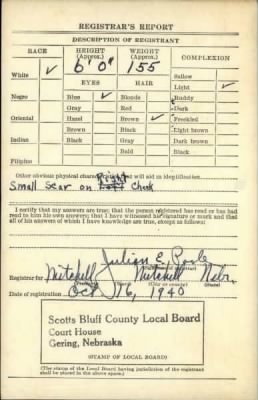 REGISTRAR'S REPORT
DESCRIPTION OF REGISTRANT
RACE HEIGHT (Approx.) WEIGHT (Approx.) COMPLEXION
6' 0" 155
White ✓ Sallow
EYES HAIR Light ✓
Negro Blue ✓ Blonde Ruddy
Gray Red Dark
Oriental Hazel Brown ✓ Freckled
Brown Black Light brown
Indian Black Gray Dark brown
Bald Black
Filipino
Other obvious physical characteristics that will aid in identification
Small Scar on Right Left Cheek
I certify that my answers are true; that the person registered has read or has had
read to him his own answers; that I have witnessed his signature or mark and that
all of his answers of which I have knowledge are true, except as follows:
Julian E.
Registrar for Mitchell Mitchell Nebr.
Date of registration Oct 16, 1940
Scotts Bluff County Local Board
Court House
Gering, Nebraska
(STAMP OF LOCAL BOARD)
(The stamp of the Local Board having jurisdiction of the registrant
shall be placed in the above space.)